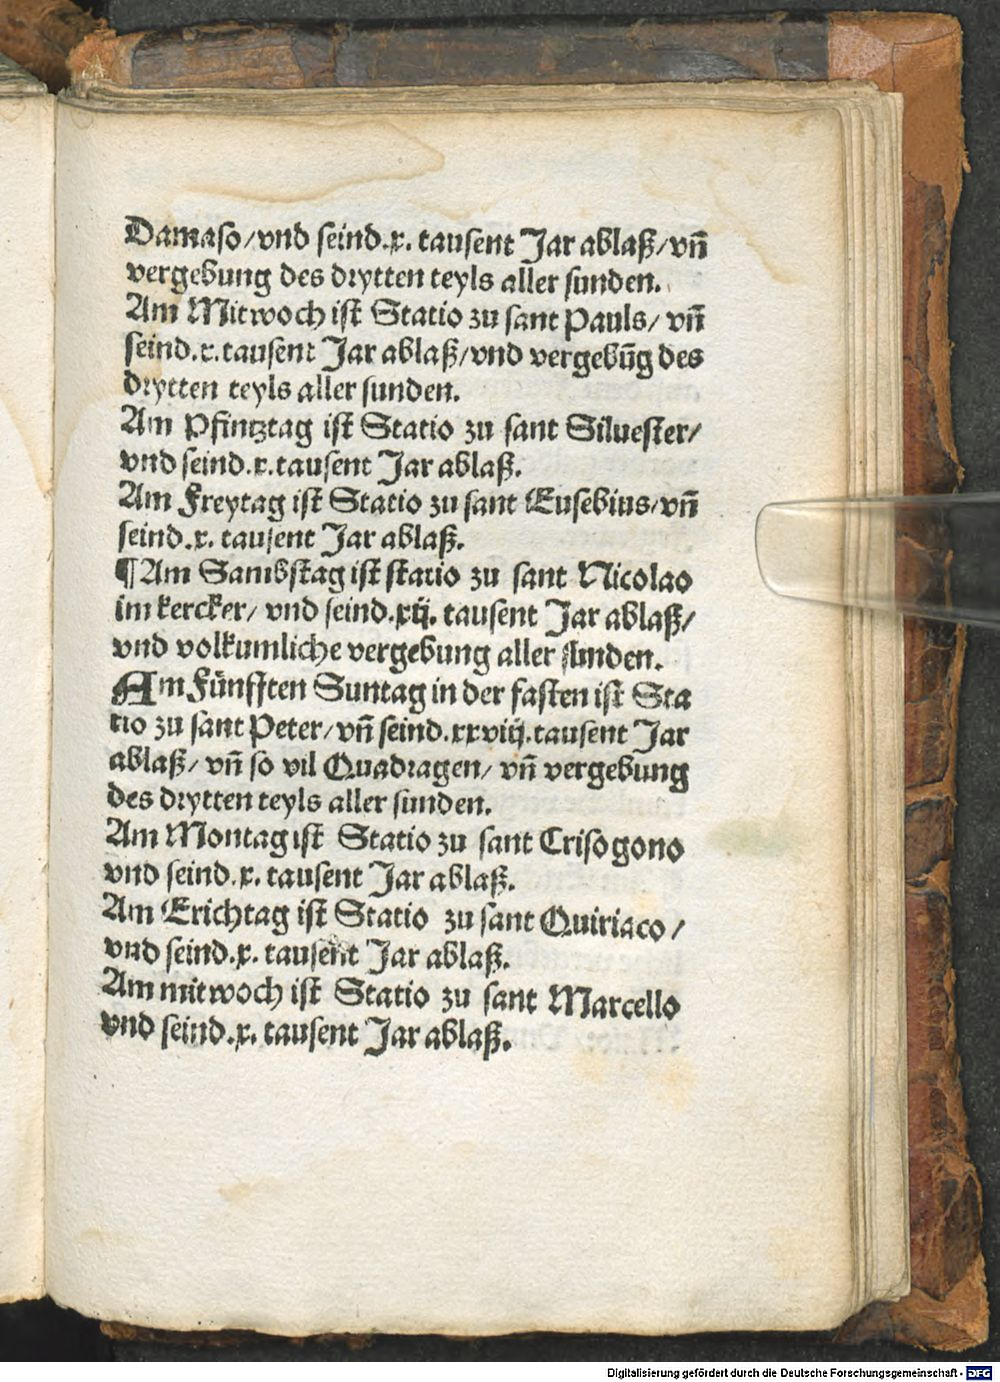 Damaso/vnd seind.x. tausent Jar ablaß/vn̄
vergebung des drytten teyls aller sunden.
Am Mitwoch ist Statio zu sant Pauls/ vn̄
seind.x.tausent Jar ablaß/vnd vergebūg des
drytten teyls aller sunden.
Am Pfintztag ist Statio zu sant Siluester/
vnd seind.x.tausent Jar ablaß.
Am Freytag ist Statio zu sant Eusebius/vn̄
seind.x. tausent Jar ablaß.
¶Am Sambstag ist statio zu sant Nicolao
im kercker/ vnd seind.xij. tausent Jar ablaß/
vnd volkumliche vergebung aller sunden.
Am Fünfften Suntag in der fasten ist Sta
tio zu sant Peter/vn̄ seind.xxviij.tausent Jar
ablaß/ vn̄ so vil Quadragen/ vn̄ vergebung
des drytten teyls aller sunden.
Am Montag ist Statio zu sant Crisogono
vnd seind.x. tausent Jar ablaß.
Am Erichtag ist Statio zu sant Quiriaco/
vnd seind.x. tausent Jar ablaß.
Am mitwoch ist Statio zu sant Marcello
vnd seind.x. tausent Jar ablaß.
Digitalisierung gefördert durch die Deutsche Forschungsgemeinschaft - DFG